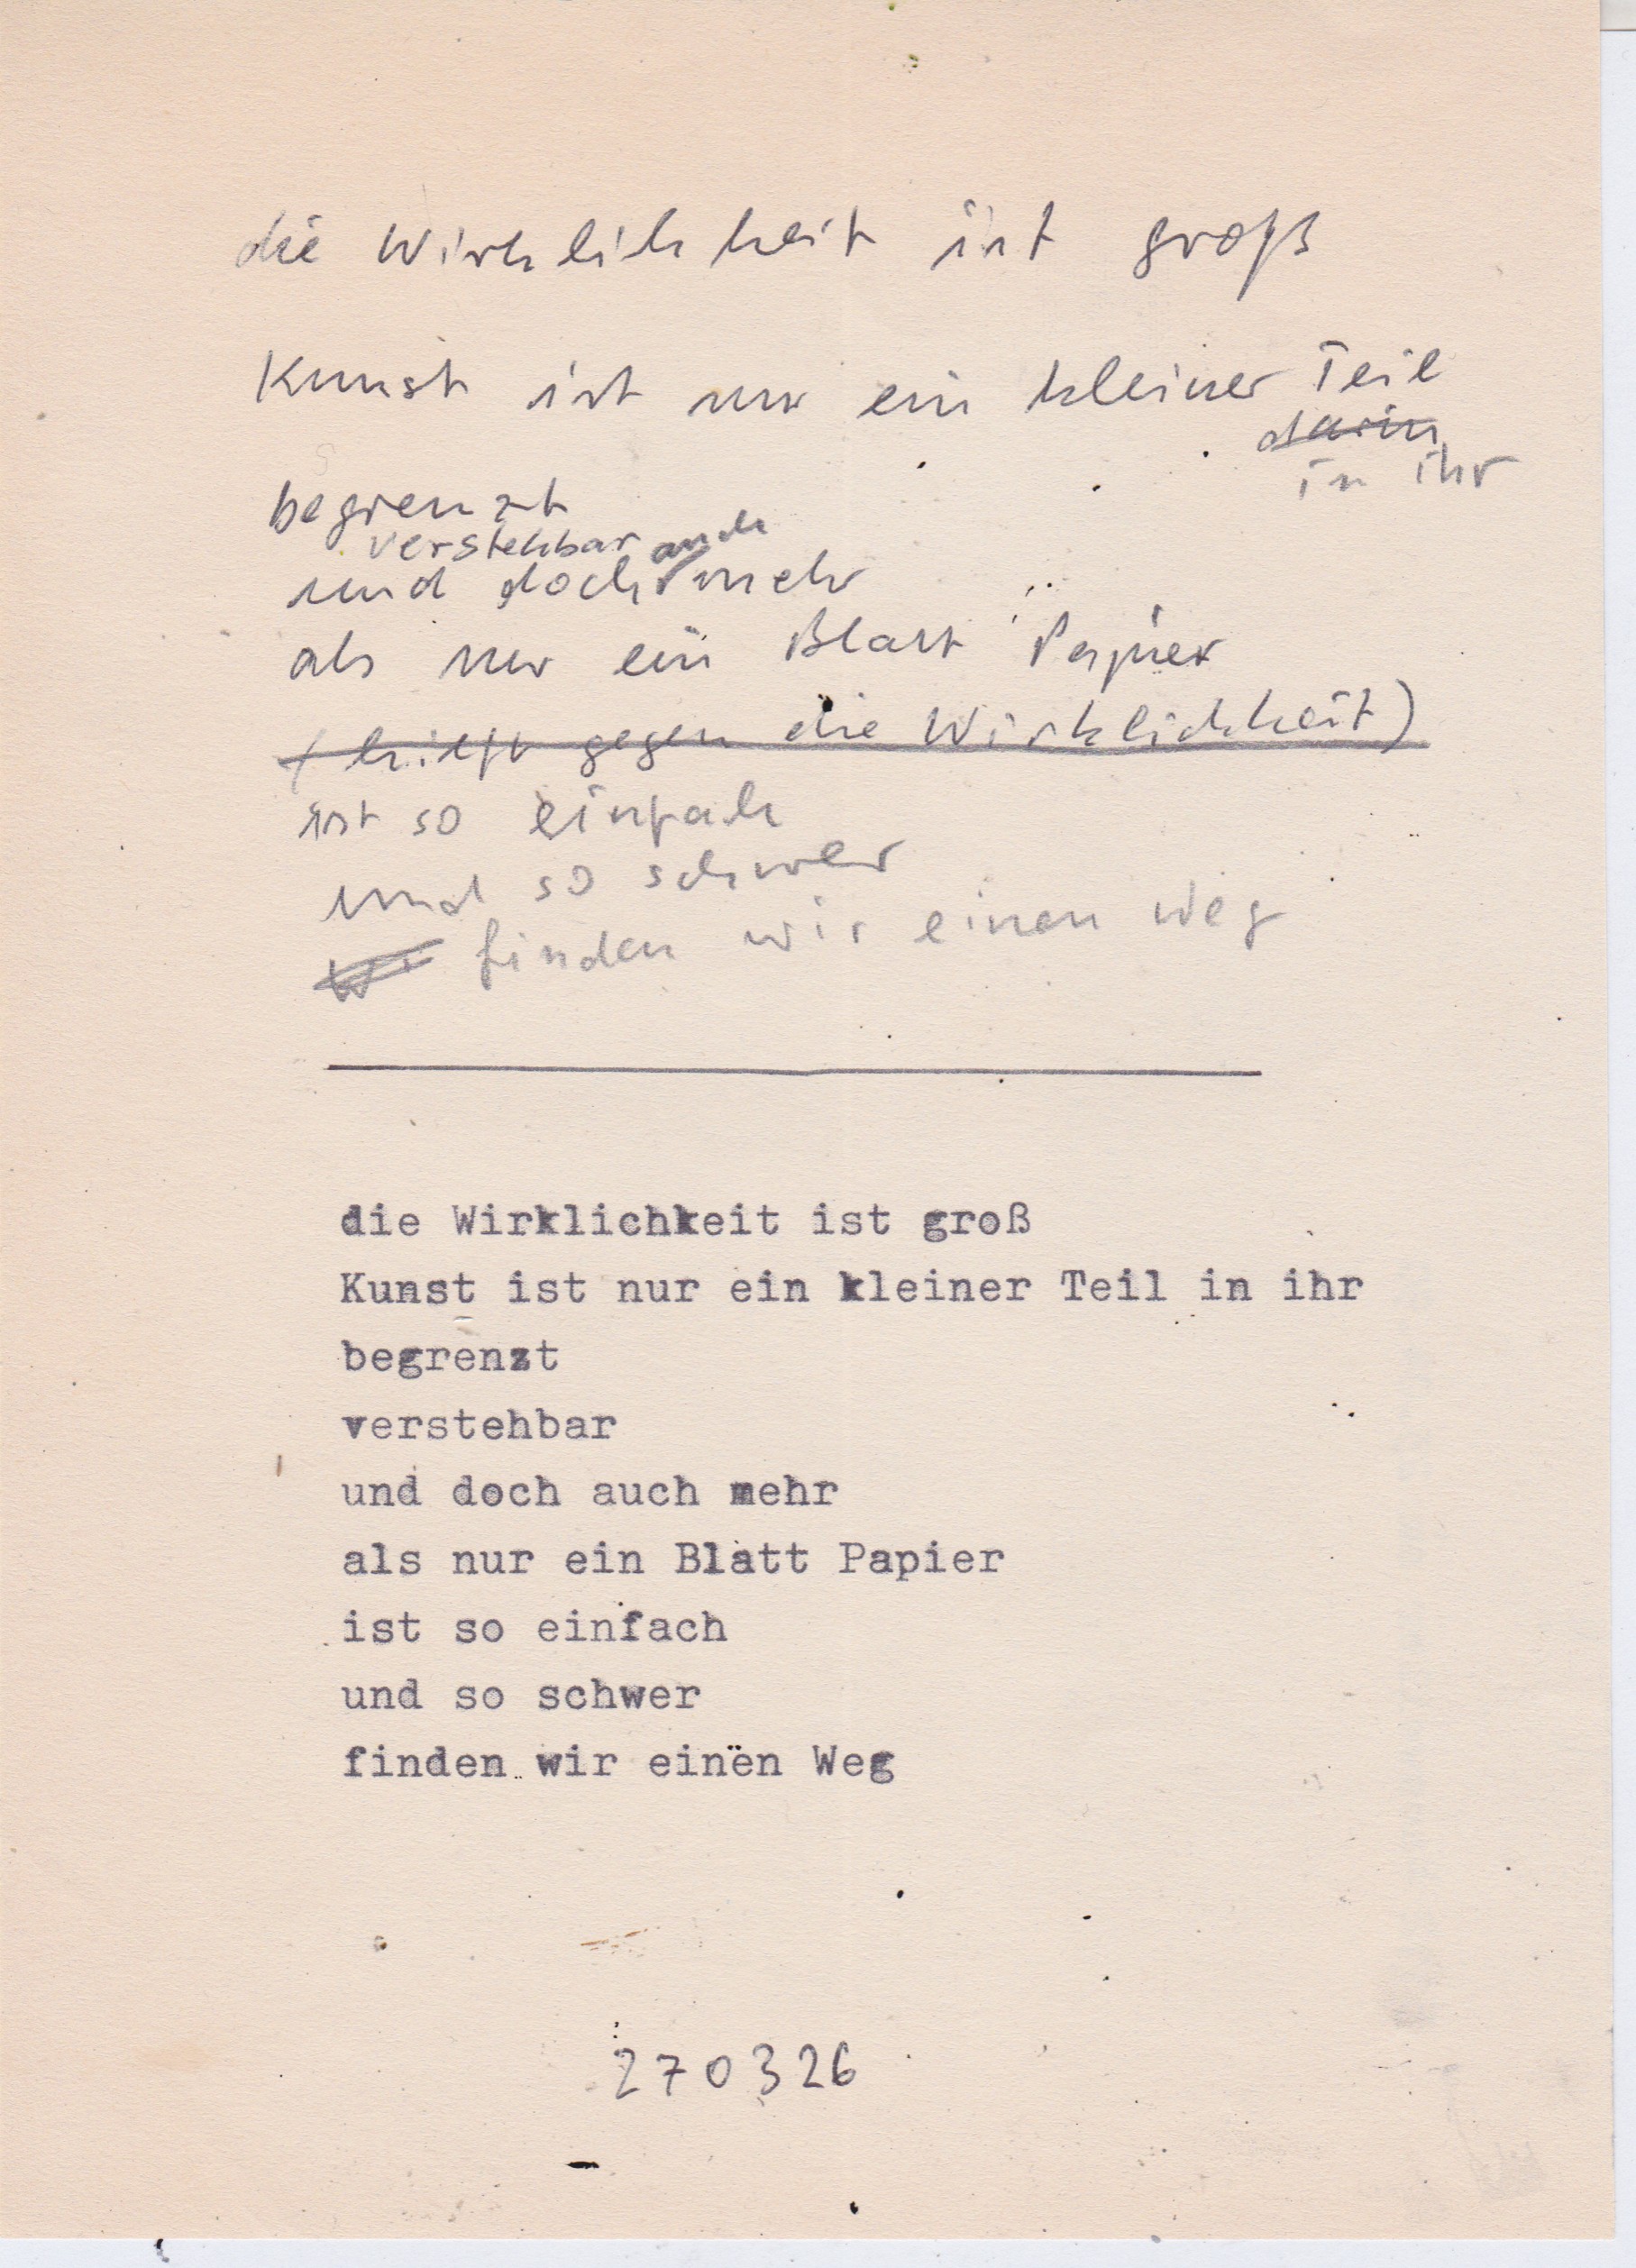 die Wirklichkeit ist groß
Kunst ist nur ein kleiner Teil
darin
in ihr
begrenzt
verstehbar auch
und doch mehr
als nur ein Blatt Papier
gegen die Wirklichkeit)
ist so einfach
und so schwer
finden wir einen Weg
die Wirklichkeit ist groß
Kunst ist nur ein kleiner Teil in ihr
begrenzt
verstehbar
und doch auch mehr
als nur ein Blatt Papier
ist so einfach
und so schwer
finden wir einen Weg
270326